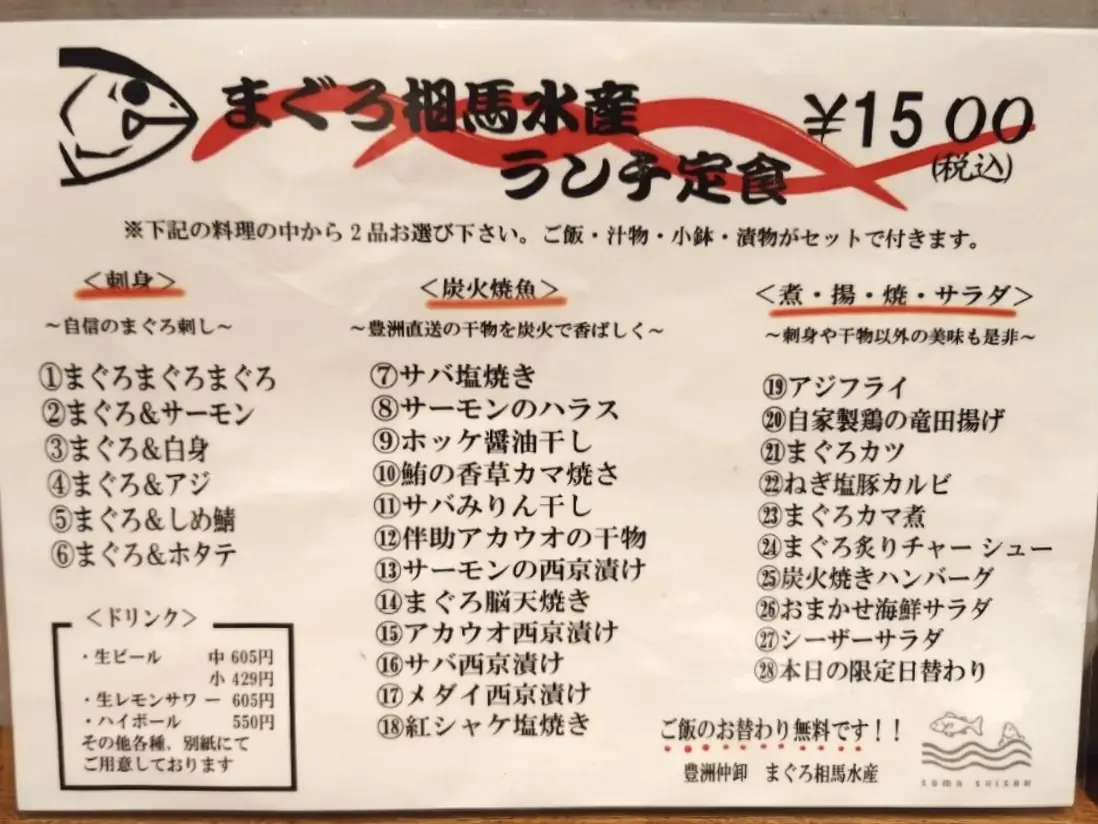 まぐろ相馬水産
ランチ定食
¥1500
(税込)
※下記の料理の中から2品お選び下さい。ご飯・汁物・小鉢・漬物がセットで付きます。
＜刺身＞
～自信のまぐろ刺し～
①まぐろまぐろまぐろ
②まぐろ&サーモン
③まぐろ&白身
④まぐろ&アジ
⑤まぐろ&しめ鯖
⑥まぐろ&ホタテ
＜ドリンク＞
・生ビール 中 605円
小 429円
・生レモンサワー 605円
・ハイボール 550円
その他各種、別紙にて
ご用意しております
＜炭火焼魚＞
～豊洲直送の干物を炭火で香ばしく～
⑦サバ塩焼き
⑧サーモンのハラス
⑨ホッケ醤油干し
⑩鮪の香草カマ焼さ
⑪サバみりん干し
⑫伴助アカウオの干物
⑬サーモンの西京漬け
⑭まぐろ脳天焼き
⑮アカウオ西京漬け
⑯サバ西京漬け
⑰メダイ西京漬け
⑱紅シャケ塩焼き
＜煮・揚・焼・サラダ＞
～刺身や干物以外の美味も是非～
⑲アジフライ
⑳自家製鶏の竜田揚げ
㉑まぐろカツ
㉒ねぎ塩豚カルビ
㉓まぐろカマ煮
㉔まぐろ炙りチャーシュー
㉕炭火焼きハンバーグ
㉖おまかせ海鮮サラダ
㉗シーザーサラダ
㉘本日の限定日替わり
ご飯のお替わり無料です！！
豊洲仲卸 まぐろ相馬水産
soma suisan